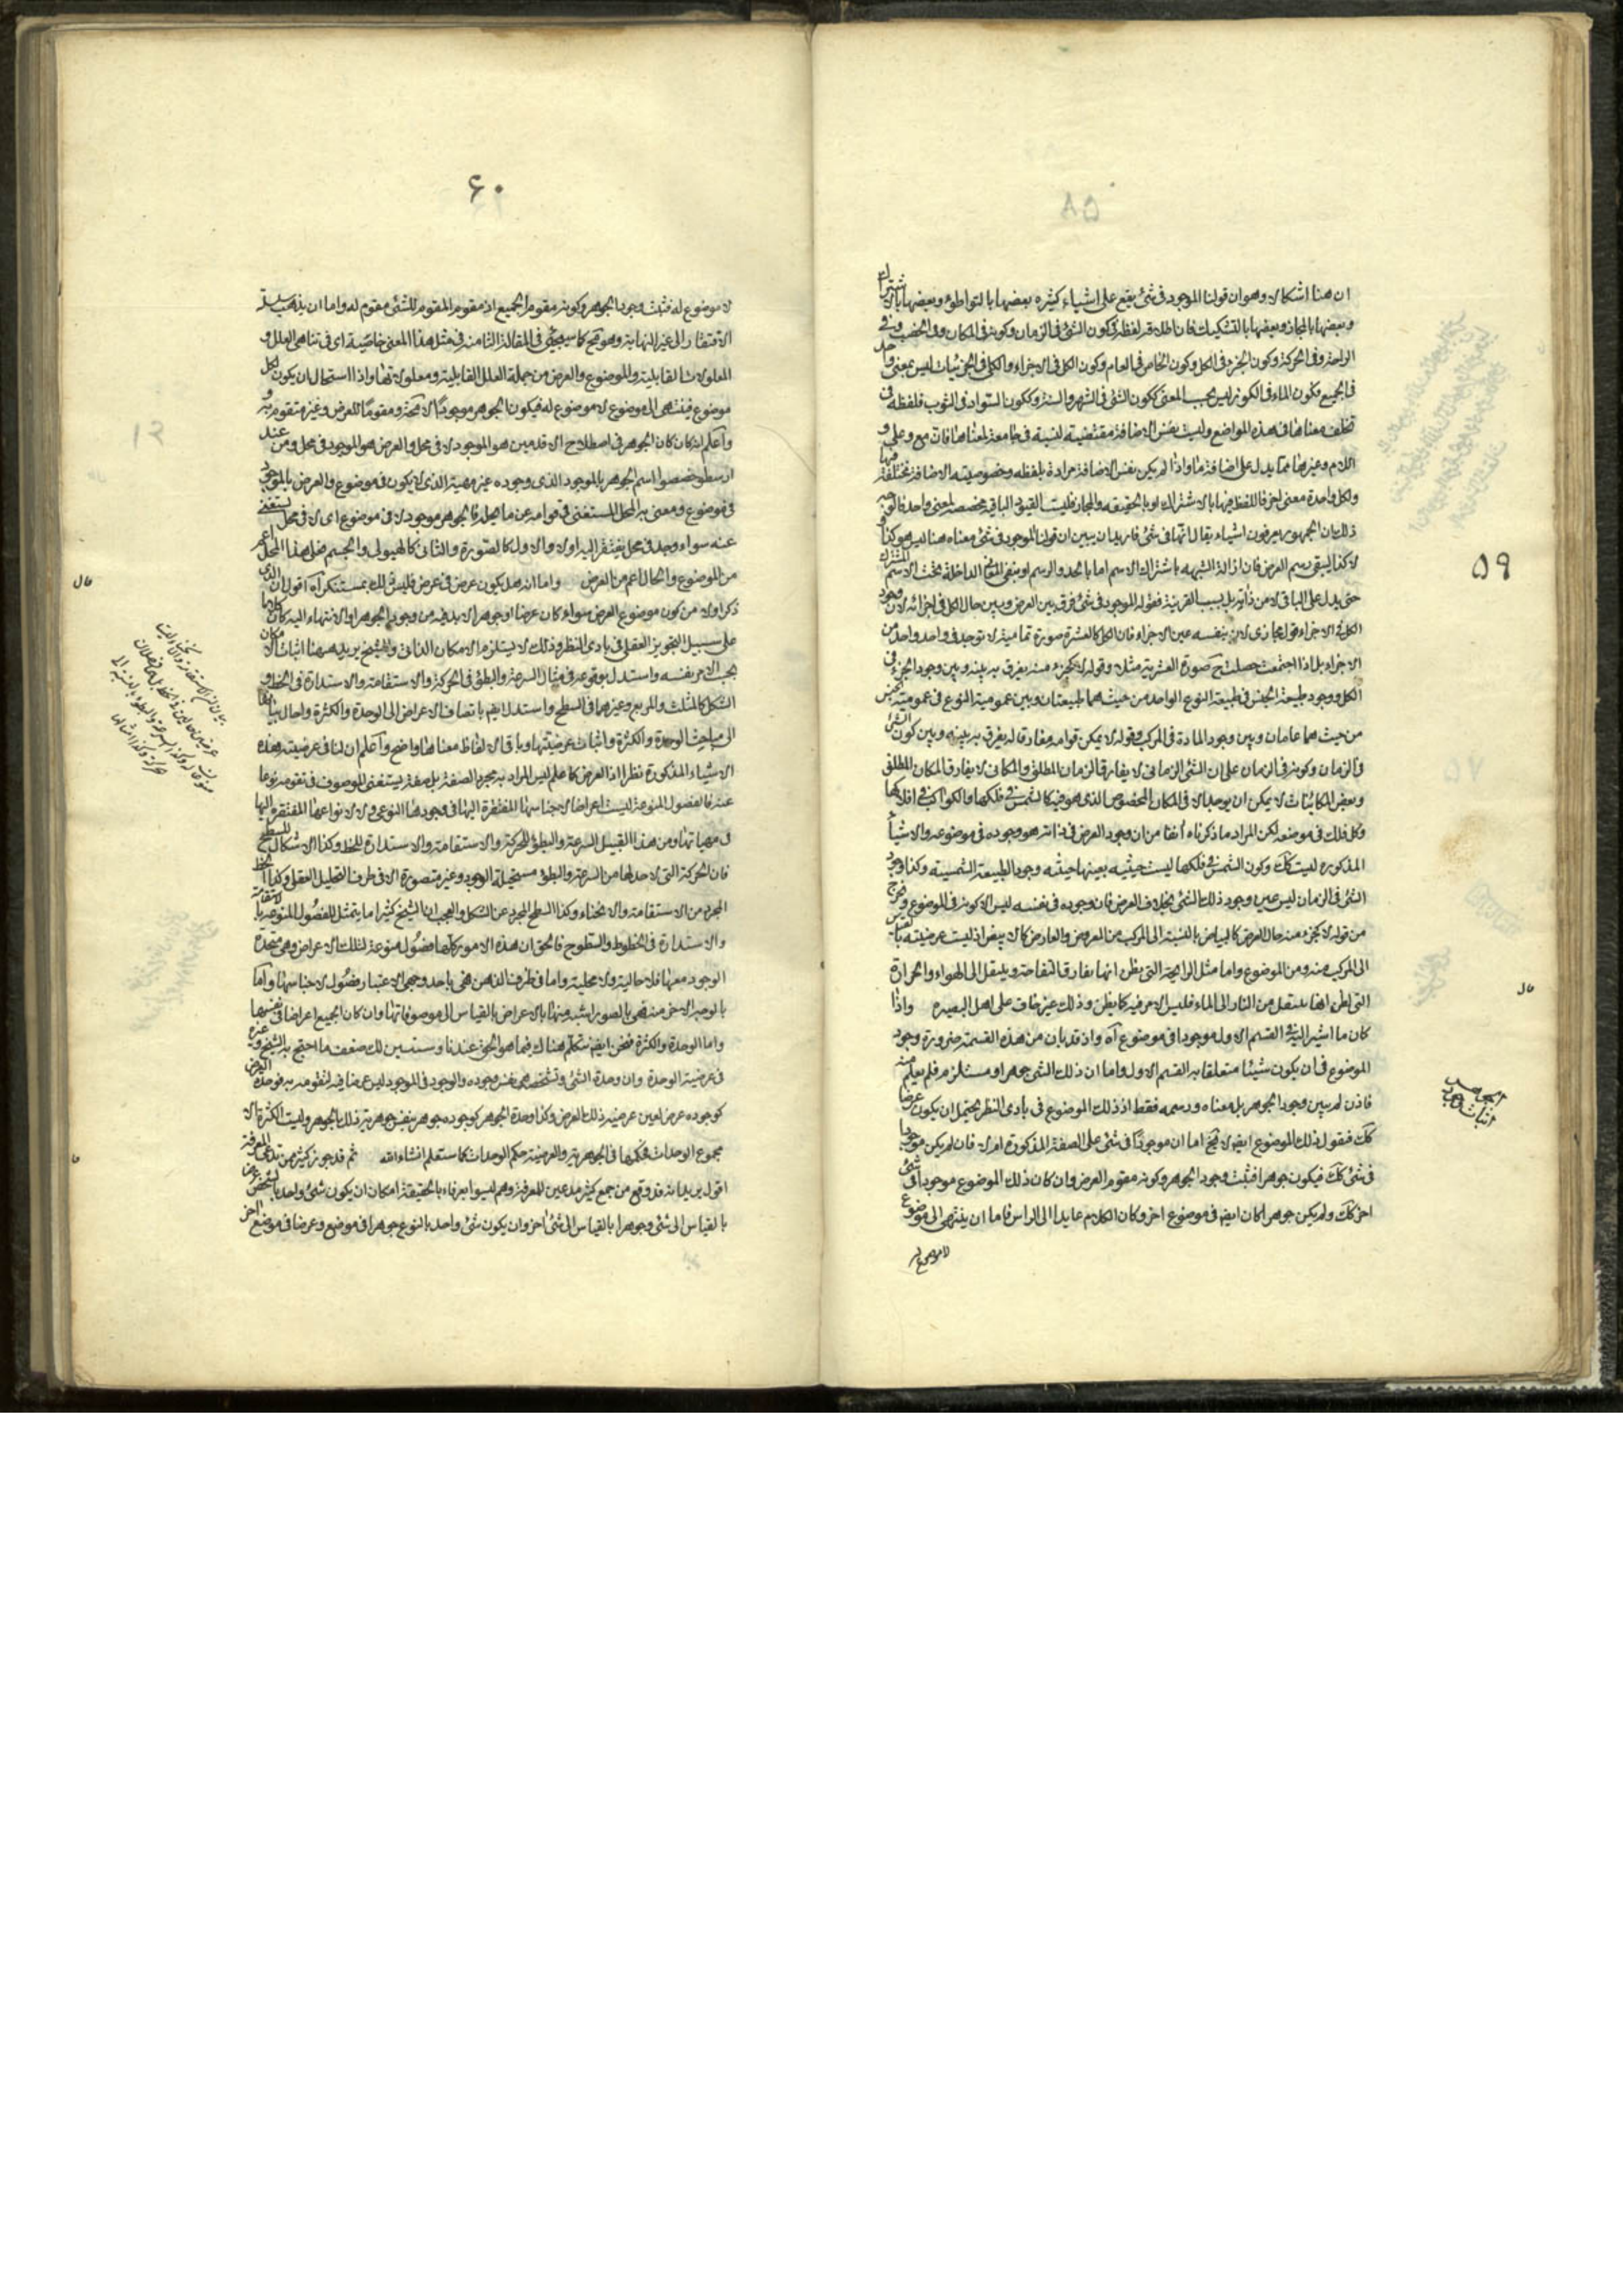 ۵۹
ان هنا اشكالا وهو ان قولنا الموجود فى شئ يقع على اشياء كثيره بعضها بالتواطؤ وبعضها بالاشتراك
وبعضها بالمجاز وبعضها بالتشكيك فان اطلاق لفظة فى كون الشئ فى الزمان وكونه فى المكان وفى الخصب وفى
الراحة وفى الحركة وكون الجزء فى الكل وكون الخاص فى العام وكون الكل فى الاجزاء والكلى فى الجزئيات ليس بمعنى واحد
فى الجميع فكون الماء فى الكوز ليس بحسب المعنى ككون الشئ فى الشهر والسنة وككون السواد فى الثوب فلفظة فى
تختلف معناها فى هذه المواضع وليست نفس الاضافة مقتضية لنسبة فى جامعة لمعناها فان مع وعلى و
اللام وغيرها مما يدل على اضافة ما واذا لم يكن نفس الاضافة مرادة بلفظه وخصوصية الاضافة مختلفة فيها
ولكل واحدة معنى اخر فاللفظ فيها بالاشتراك او بالحقيقه والمجاز فليست القيود الباقيه مخصصه لمعنى واحد
ذلك ان الجمهور يعرفون اشياء يقال انها فى شئ فاريد ان يبين ان قولنا الموجود فى شئ معناه هنا ليس هو كذا
لا كذا ليبقى رسم العرض فان ازالة الشبهه باشتراك الاسم اما بالحد والرسم او بنفى المعانى الداخلة تحت الاسم المشترك
حتى يدل على الباقى لا من ذاته بل بسبب القرينة فقوله الموجود فى شئ فرق بين العرض وبين حال الكل فى اجزائه لان وجود
الكل فى الاجزاء قول مجازى لانه بنفسه عين الاجزاء فان الكل كالعشرة صورة تمامية لا توجد فى واحد واحد من
الاجزاء بل اذا اجتمعت حصلت ح صورة العشرية مثلا وقوله لا كجزء منه يفرق به بينه وبين وجود الجزء فى
الكل ووجود طبيعة الجنس فى طبيعة النوع الواحد من حيث هما طبيعتان وبين عمومية النوع فى عمومية الجنس
من حيث هما عامان وبين وجود المادة فى المركب وقوله لا يمكن قوامه مفارقا له يفرق به بينه وبين كون الشئ
فى الزمان وكونه فى الزمان على ان الشئ الزمانى لا يفارق الزمان المطلق والمكانى لا يفارق المكان المطلق
وبعض الكائنات لا يمكن ان يوجد الا فى المكان المخصوص الذى هو فيه كالشمس فى فلكها والكواكب فى افلاكها
وكل فلك فى موضعه لكن المراد ما ذكرناه انفا من ان وجود العرض فى ذاته هو وجوده فى موضوعه والاشياء
المذكوره ليست كك وكون الشمس فى فلكها ليست حيثيته بعينها حيثيه وجود الطبيعة الشمسية وكذا وجود
الشئ فى الزمان ليس عين وجود ذلك الشئ بخلاف العرض فان وجوده فى نفسه ليس الا كونه فى الموضوع وخرج
من قوله لا كجزء منه حال العرض كالبياض بالنسبة الى المركب من المعروض والعارض كالابيض اذ ليست عرضيته بالقياس
الى المركب منه ومن الموضوع واما مثل الرايحة التى يظن انها يفارق التفاحة وينتقل الى الهواء والحرارة
التى يظن انها ينتقل من النار الى الماء فليس الامر فيه كما يظن وذلك غير خاف على اهل البصيره واذا
كان ما اشير اليه فى القسم الاول موجودا فى موضوع آه واذ قد بان من هذه القسمة ضرورة وجود
الموضوع فى ان يكون شيئا متعلقا به القسم الاول واما ان ذلك الشئ جوهر او مستلزم فلم يعلم منه
فاذن لم يبين وجود الجوهر بل معناه ورسمه فقط اذ ذلك الموضوع فى بادى النظر يحتمل ان يكون عرضا
كك فنقول ذلك الموضوع ايضا لا يخ اما ان موجودا فى شئ على الصفة المذكورة ام لا فان لم يكن موجودا
فى شئ كك فيكون جوهرا فثبت وجود الجوهر وكونه مقوم العرض وان كان ذلك الموضوع موجودا فى شئ
اخر كك ولم يكن جوهرا لكان ايضا فى موضوع اخر وكان الكلام عايدا الى الراس فاما ان ينتهى الى موضوع
لا موضوع له
اثبات وجود
الجواهر
۶۰
لا موضوع له فثبت وجود الجوهر وكونه مقوم الجميع اذ مقوم المقوم للشئ مقوم له واما ان يذهب سلسلة
الافتقار الى غير النهاية وهو مح كما سيجئ فى المقالة الثامنة فى مثل هذا المعنى خاصية اى فى تناهى العلل و
المعلولات القابلية والموضوع والعرض من جملة العلل القابلية ومعلولاتها واذا استحال ان يكون لكل
موضوع فينتهى الى موضوع لا موضوع له فيكون الجوهر موجودا لا محة ومقوما للعرض وغير متقوم به و
اعلم انه كان كان الجوهر فى اصطلاح الاقدمين هو الموجود لا فى محل والعرض هو الموجود فى محل ومن عند
ارسطو خصصوا اسم الجوهر بالموجود الذى وجوده غير مهية الذى لا يكون فى موضوع والعرض بالموجود
فى موضوع ومعنى به المحل المستغنى فى قوامه عن ما يحله فالجوهر موجود لا فى موضوع اى لا فى محل يستغنى
عنه سواء وجد فى محل يفتقر اليه او لا والاول كالصورة والثانى كالهيولى والجسم فعلى هذا المحل اعم
من الموضوع والحال اعم من العرض واما انه هل يكون عرض فى عرض فليس ذلك بمستنكر آه اقول ان الذى
ذكر اولا من كون موضوع العرض سواء كان عرضا او جوهرا لا بد فيه من وجود الجوهر او الانتهاء اليه كان كلاما
على سبيل التجويز العقلى فى بادى النظر وذلك لا يستلزم الامكان الذاتى والشيخ يريد ههنا اثبات الامكان
بحسب الامر نفسه واستدل بوقوعه فى مثال السرعة والبطؤ فى الحركة والاستقامة والاستدارة فى الخط و
الشكل كالمثلث والمربع وغيرهما فى السطح واستدل ايضا باتصاف الاعراض الى الوحدة والكثرة واحال بيانها
الى مباحث الوحدة والكثرة واثبات عرضيتها وباقى الالفاظ معناها واضح واعلم ان لنا فى عرضية هذه
الاشياء المذكورة نظرا اذ العرض كما علم ليس المراد به مجرد الصفة بل صفة يستغنى الموصوف فى تقومه نوعا
عنه فالفصول المنوعة ليست اعراضا لاجناسها المفتقرة اليها فى وجودها النوعى ولا لانواعها المفتقرة اليها
فى مهياتها ومن هذا القبيل السرعة والبطؤ للحركة والاستقامة والاستدارة للخط وكذا الاشكال للسطح
فان الحركة التى لا حد لها من السرعة والبطؤ مستحيلة الوجود وغير متصورة الا فى ظرف التحليل العقلى وكذا الخط
المجرد من الاستقامة والانحناء وكذا السطح المجرد عن الشكل والعجب ان الشيخ كثيرا ما يتمثل للفصول المنوعة بالاستقامة
والاستدارة فى الخطوط والسطوح فالحق ان هذه الامور كلها فصول منوعة لتلك الاعراض وهى متحدة
الوجود معها فلا حالية ولا محلية واما فى ظرف الذهن فهى باحد وجهى الاعتبار فصول لاجناسها واما
بالوجه الاخر منه فهى بالصور اشبه منها بالاعراض بالقياس الى موصوفاتها وان كان الجميع اعراضا فى نفسها
واما الوحدة والكثرة فنحن ايضا سنتكلم هناك فيما هو الحق عندنا وستبين لك ضعف ما احتج به الشيخ وغيره
فى عرضية الوحدة وان وحدة الشئ وتشخصه هى نفس وجوده والوجود فى الموجود ليس عرضا فيه لتقومه به فوحدة العرض
كوجوده عرض بعين عرضية ذلك العرض وكذا وحدة الجوهر كوجوده جوهر بنفس جوهرية ذلك الجوهر وليست الكثرة الا
مجموع الوحدات فحكمها فى الجوهرية والعرضية حكم الوحدات كما ستعلم انشاء الله ثم قد جوز كثير من يدعى المعرفة
اقول يريد انه قد وقع من جمع كثير مدعين للمعرفة وهم ليسوا بعرفاء بالحقيقة امكان ان يكون شئ واحد بالشخص عرضا
بالقياس الى شئ وجوهرا بالقياس الى شئ اخر وان يكون شئ واحد بالنوع جوهرا فى موضع وعرضا فى موضع اخر